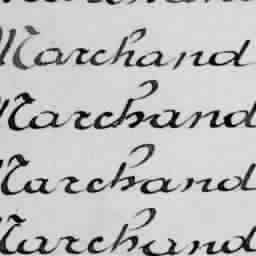 Marchand
Marchand
Marchand
Marchand